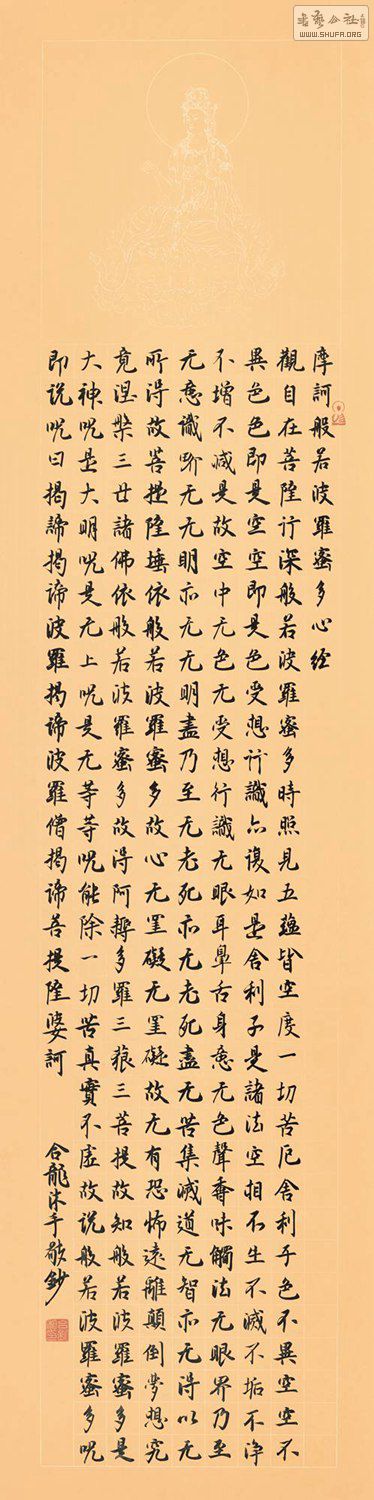 書藝公社
WWW.SHUFA.ORG
摩訶般若波羅蜜多心经
觀自在菩薩行深般若波羅蜜多時照見五蕴皆空度一切苦厄舍利子色不異空空不
異色色即是空空即是色受想行識亦復如是舍利子是諸法空相不生不滅不垢不净
不增不减是故空中无色无受想行識无眼耳鼻舌身意无色聲香味觸法无眼界乃至
无意識界无无明亦无无明盡乃至无老死亦无老死盡无苦集滅道无智亦无得以无
所得故菩提薩埵依般若波羅蜜多故心无罣礙无罣礙故无有恐怖遠離顛倒夢想究
竟涅槃三世諸佛依般若波羅蜜多故得阿耨多羅三藐三菩提故知般若波羅蜜多是
大神呪是大明呪是无上呪是无等等呪能除一切苦真實不虚故说般若波羅蜜多呪
即说呪曰揭諦揭諦波羅揭諦波羅僧揭諦菩提薩婆訶
合龍沐手敬鈔